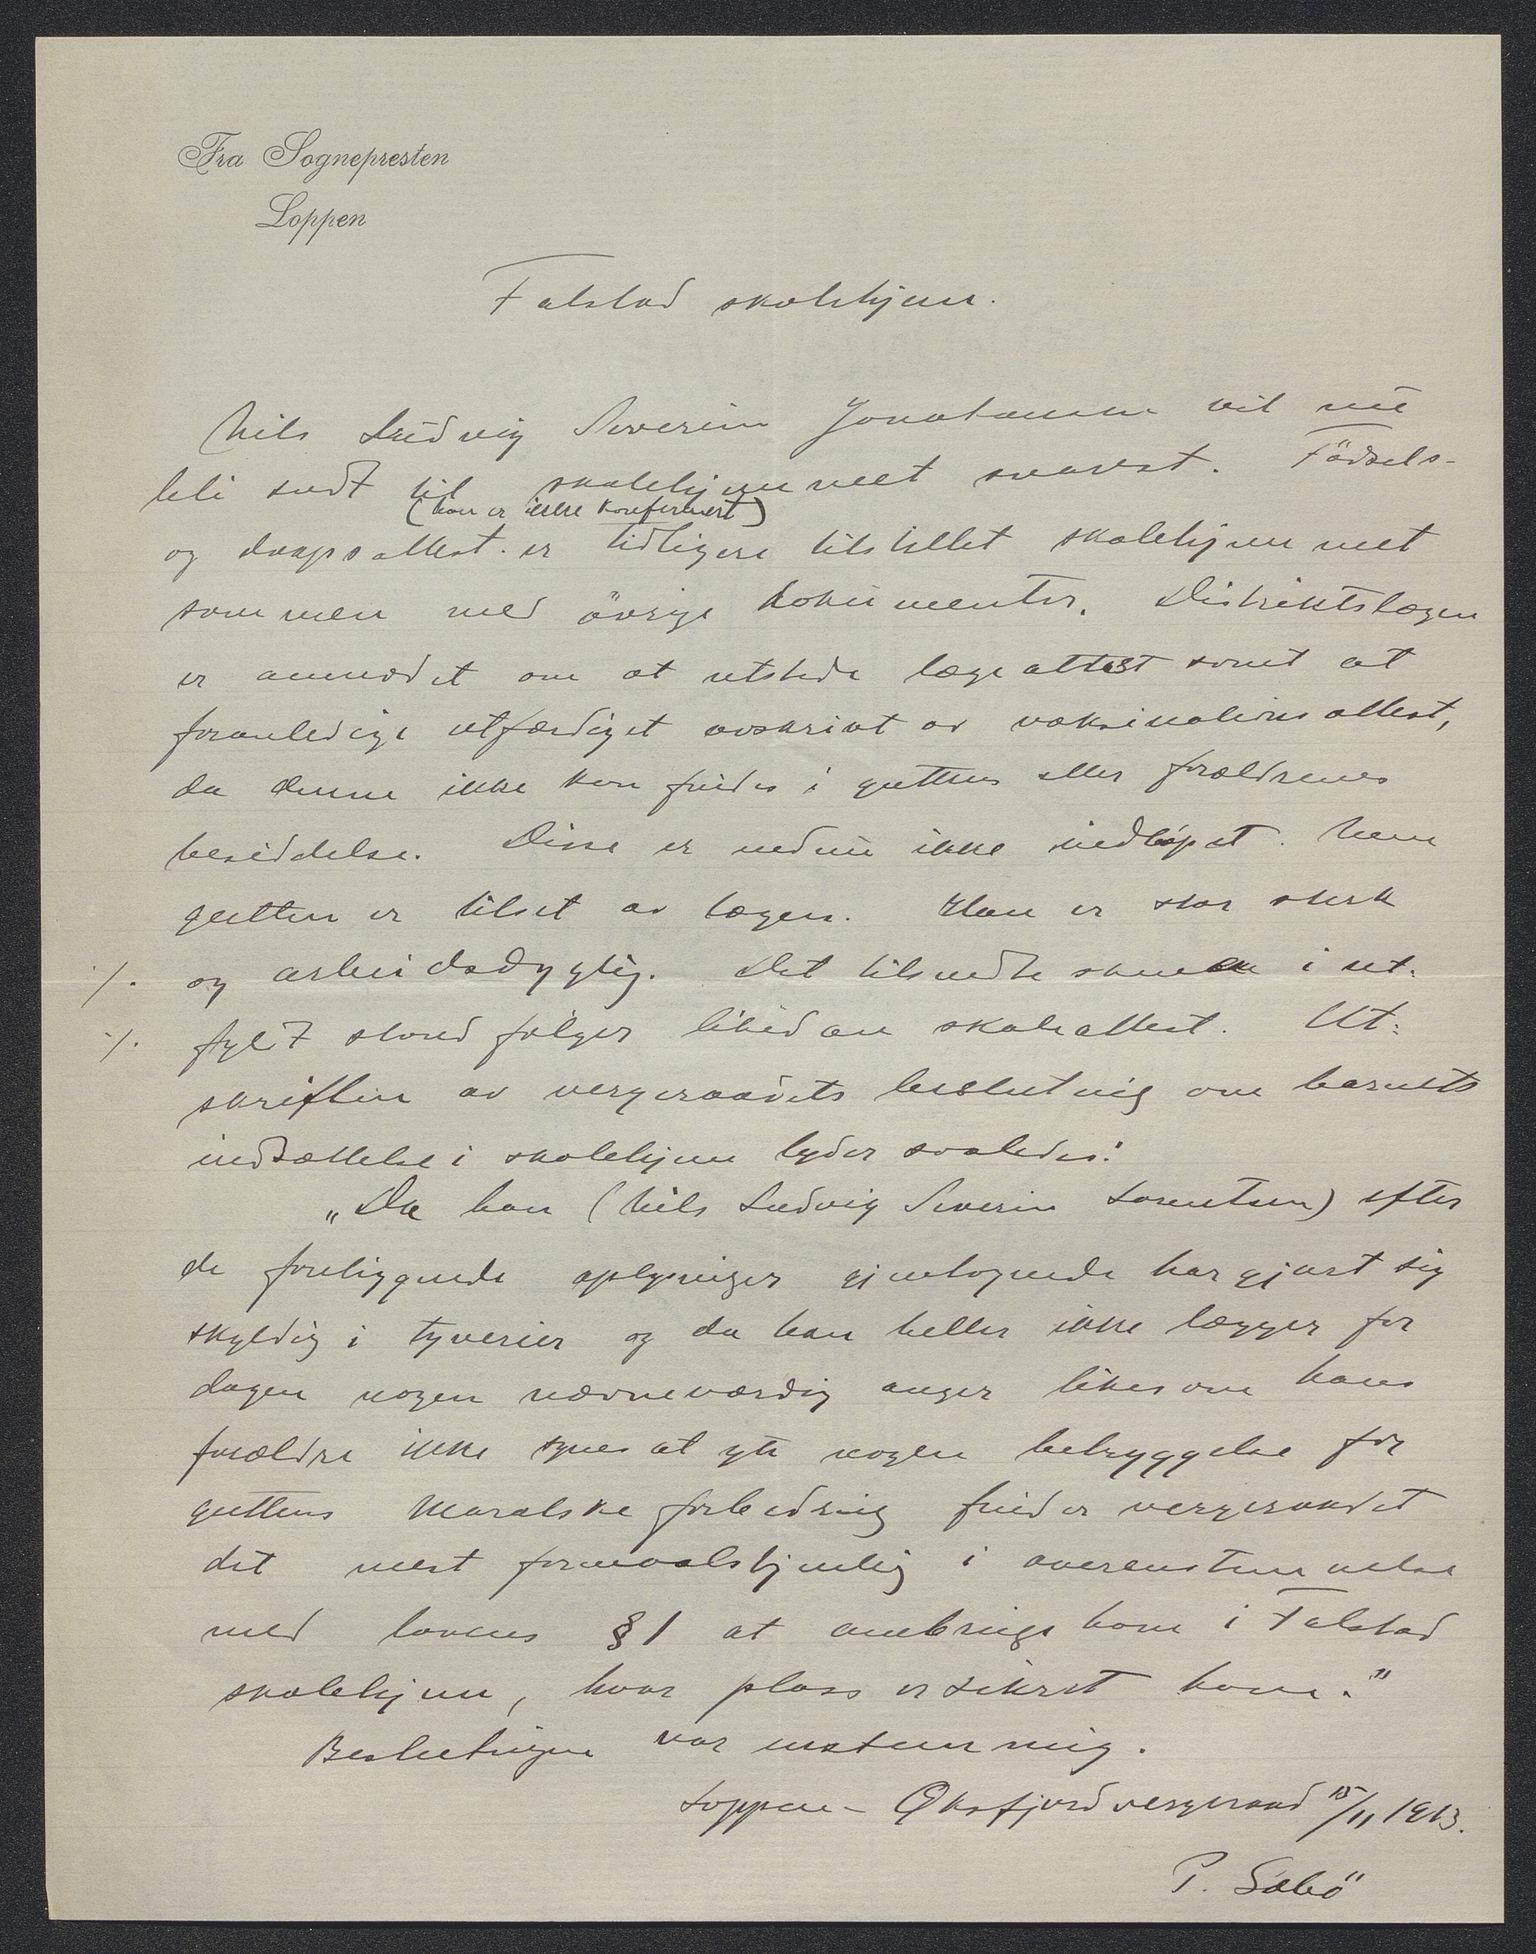 Fra Sognepresten
Loppen
Falstad skolehjem.
Nils Ludvig Severin Jonatansen vil nu
bli sendt til skolehjemmet snarest. Födsels-
(han er ikke konfirmert)
og daapsattest er tidligere tilstillet skolehjemmet
sammen med övrige dokumenter. Distriktslægen
er anmodet om at utstede lægeattest samt at
foranledige utfærdiget avskrivt av vaksinationsattest,
da denne ikke kan findes i guttens eller forældrenes
besiddelse. Disse er endnu ikke indløpet. Men
gutten er tilset av lægen. Han er stor sterk
./. og arbeidsdygtig. Det tilsendte skema i ut-
./. fyldt stand følger likedan skoleattest. Ut-
skriften av vergeraadets beslutning om barnets
indsættelse i skolehjem lyder saaledes:
„Da han (Nils Ludvig Severin Lorentsen) efter
de foreliggende oplysninger gjentagende har gjort sig
skyldig i tyverier og da han heller ikke lægger for
dagen nogen nævneværdig anger likesom hans
forældre ikke synes at yte nogen betryggelse for
guttens moralske forbedring finder vergeraadet
det mest formaalstjenlig i overenstemmelse
med lovens § 1 at anbringe ham i Falstad
skolehjem, hvor plass er sikret ham."
Beslutningen var enstemmig.
Loppen - Øksfjord vergeraad 15/11 1913.
P. Sæbö